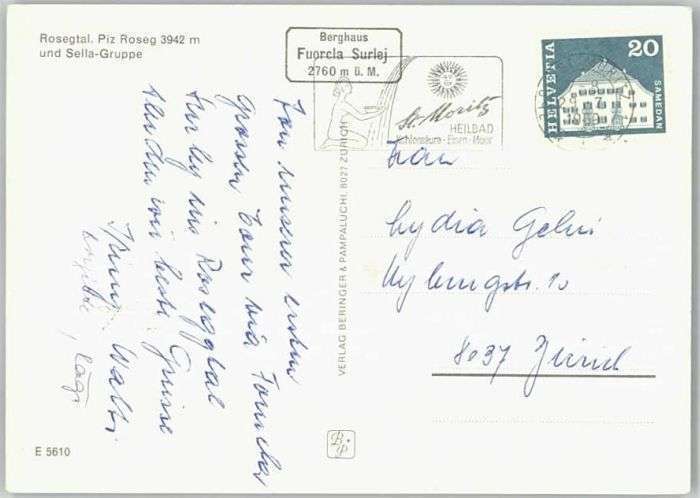 Rosegtal. Piz Roseg 3942 m
und Sella-Gruppe
Berghaus
Fuorcla Surlej
2760 m ü. M.
St. Moritz
HEILBAD
HELVETIA
20
SAMEDAN
Von unserer ersten
grossen Tour via Fuorcla
Surlej ins Roseggtal
senden wir beste Grüsse
Walti
VERLAG BERINGER & PAMPALUCHI, 8027 ZÜRICH
Frau
Lydia
10
8037 Zürich
B.P
E 5610